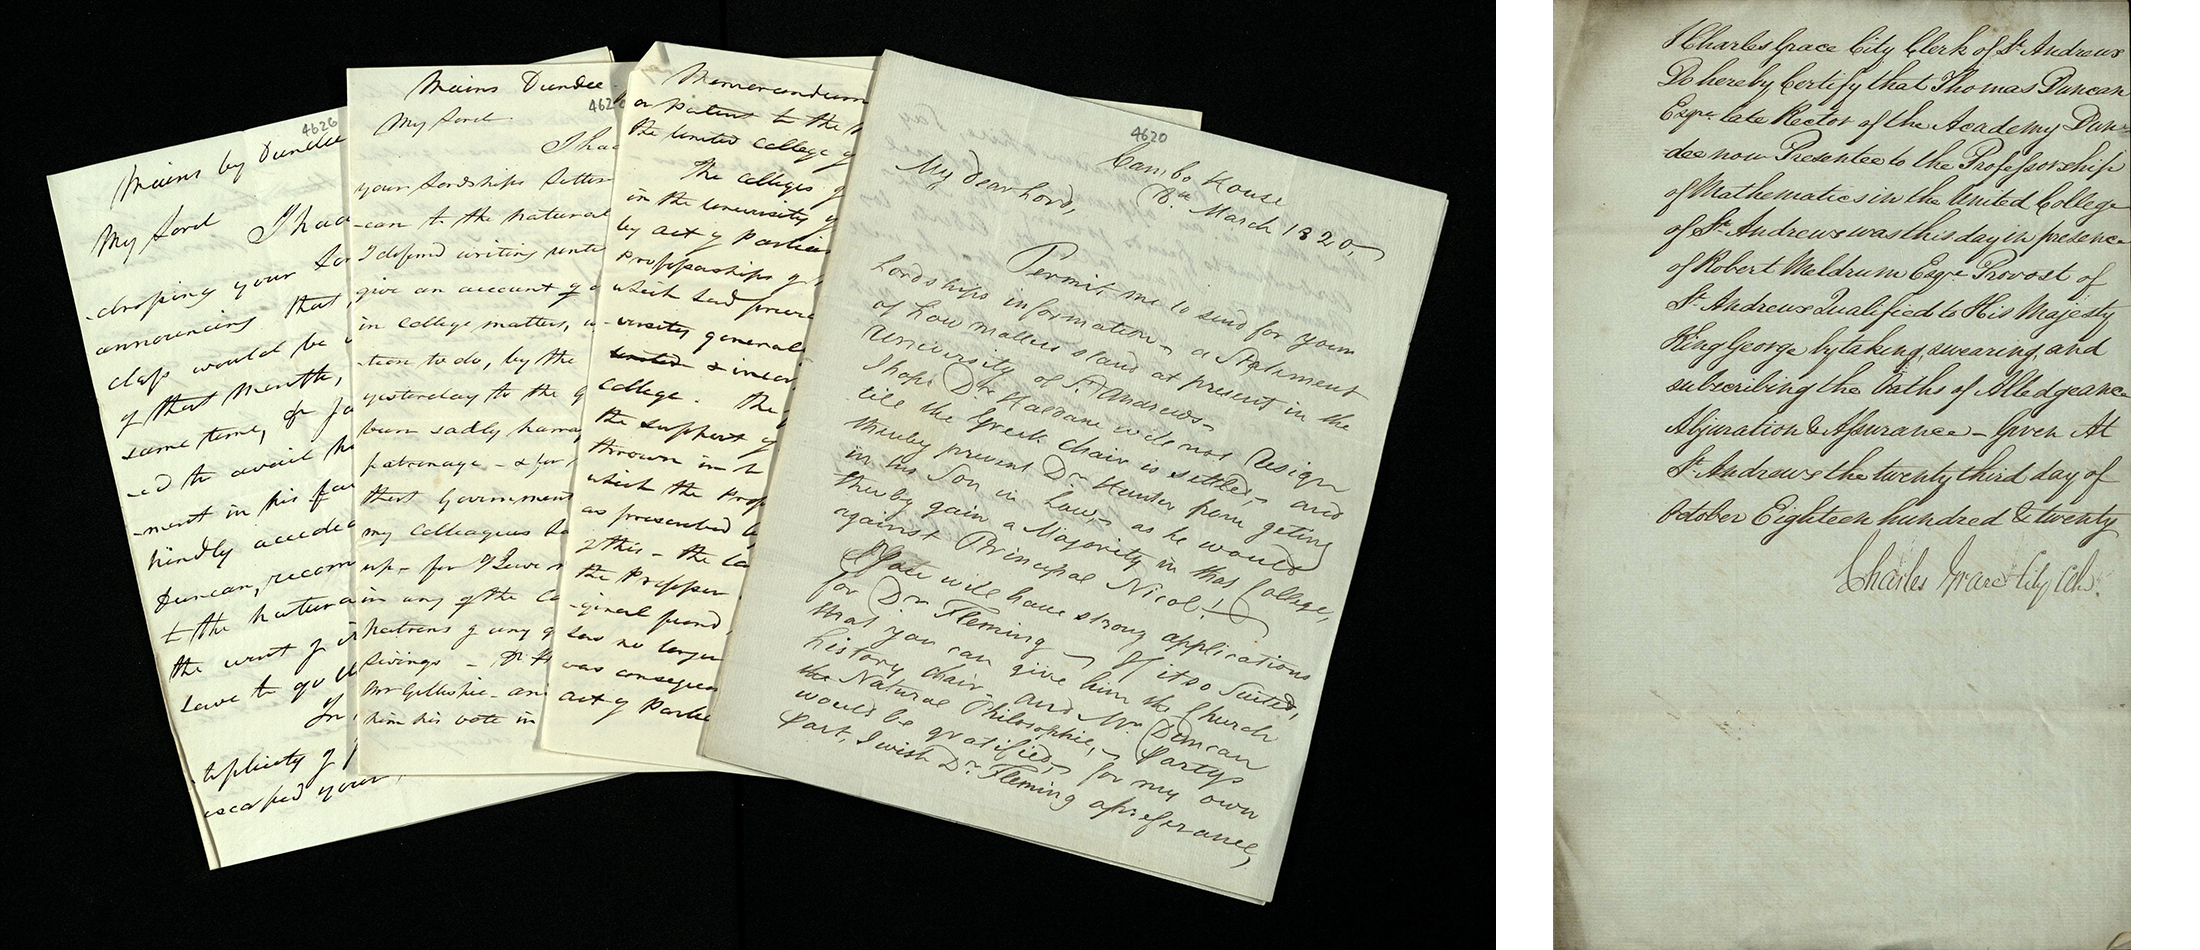 4626
Mains by Dundee
My Lord I had
-dressing your Lor
announcing that
class would be
of that Month,
same time, Dr Ja
-ed to avail h
-ment in his fav
kindly accede
Duncan, recom
to the natura
the want of
leave to go
In
-tiplicity of
escaped your
462
Mains Dundee
My Lord
I hac
your Lordships letter
-can to the natural
I defered writing unti
give an account of
in College matters, w
-tion to do, by the
yesterday to the
been sadly harra
patronage - & for
that Government
my colleagues ha
up - for I have n
in any of the Co
Patrons of any
Livings - Dr H
Mr Gillespie - and
him his vote in
Memorandum
or patent to the
the United College of
The Colleges of
in the University of
by act of Parlia
Professorships of
which had previ
-versity general
United & incor
College. The
the support of
thrown in to
which the Prof
as prescribed by
of this - the la
the Professor
-ginal fund,
has no longer
was consequen
act of Parlia
4620
Cambo House
8th March 1820,
My dear Lord,
Permit me to send for your
Lordships information a Statement
of how matters stand at present in the
University of St Andrews
I hope Dr Haldane will not resign
till the Greek chair is settled, and
thereby prevent Dr Hunter from geting
in his Son in Law, as he would
thereby gain a Majority in that College,
against Principal Nicol!
You will have strong applications
for Dr Fleming If it so Suited,
that you can give him the Church
history chair and Mr Duncan
the Natural Philosophie, Partys
would be gratified, for my own
part, I wish Dr Fleming a preferance,
I Charles Grace City Clerk of St. Andrews
Do hereby Certify that Thomas Duncan
Esqre. late Rector of the Academy Dun-
-dee now Presentee to the Professorship
of Mathematics in the United College
of St. Andrews was this day in presence
of Robert Meldrum Esqre Provost of
St. Andrews Qualified to His Majesty
King George by taking, swearing, and
subscribing the Oaths of Alledgeance
Abjuration & Assurance - Given At
St. Andrews the twenty third day of
October Eighteen hundred & twenty
Charles Grace City Clk.